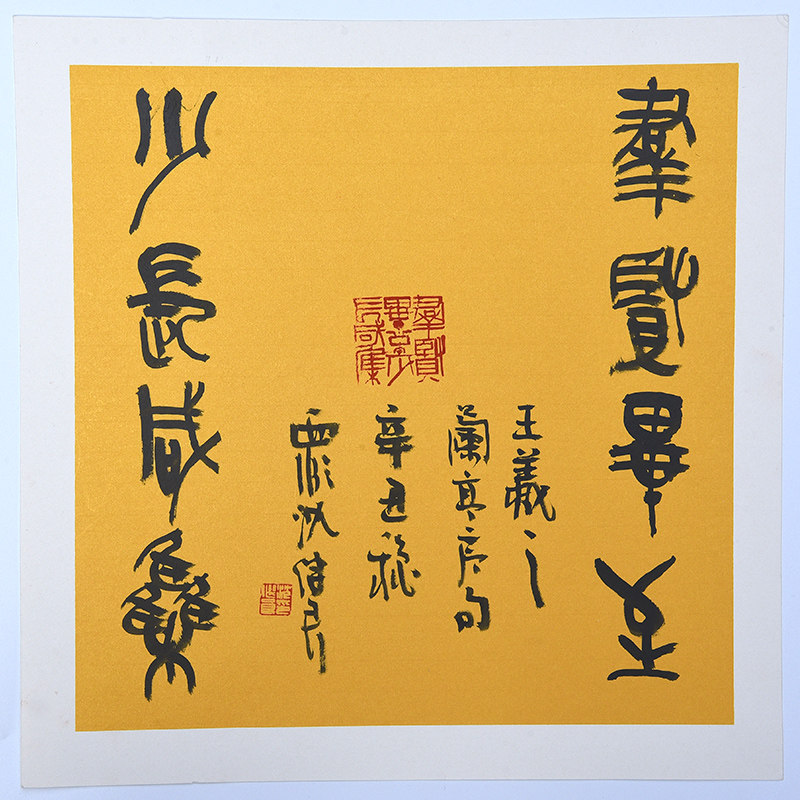 羣賢畢至
王羲之
蘭亭序句
辛丑秋
羣賢
畢至少
長咸集
少長咸雧